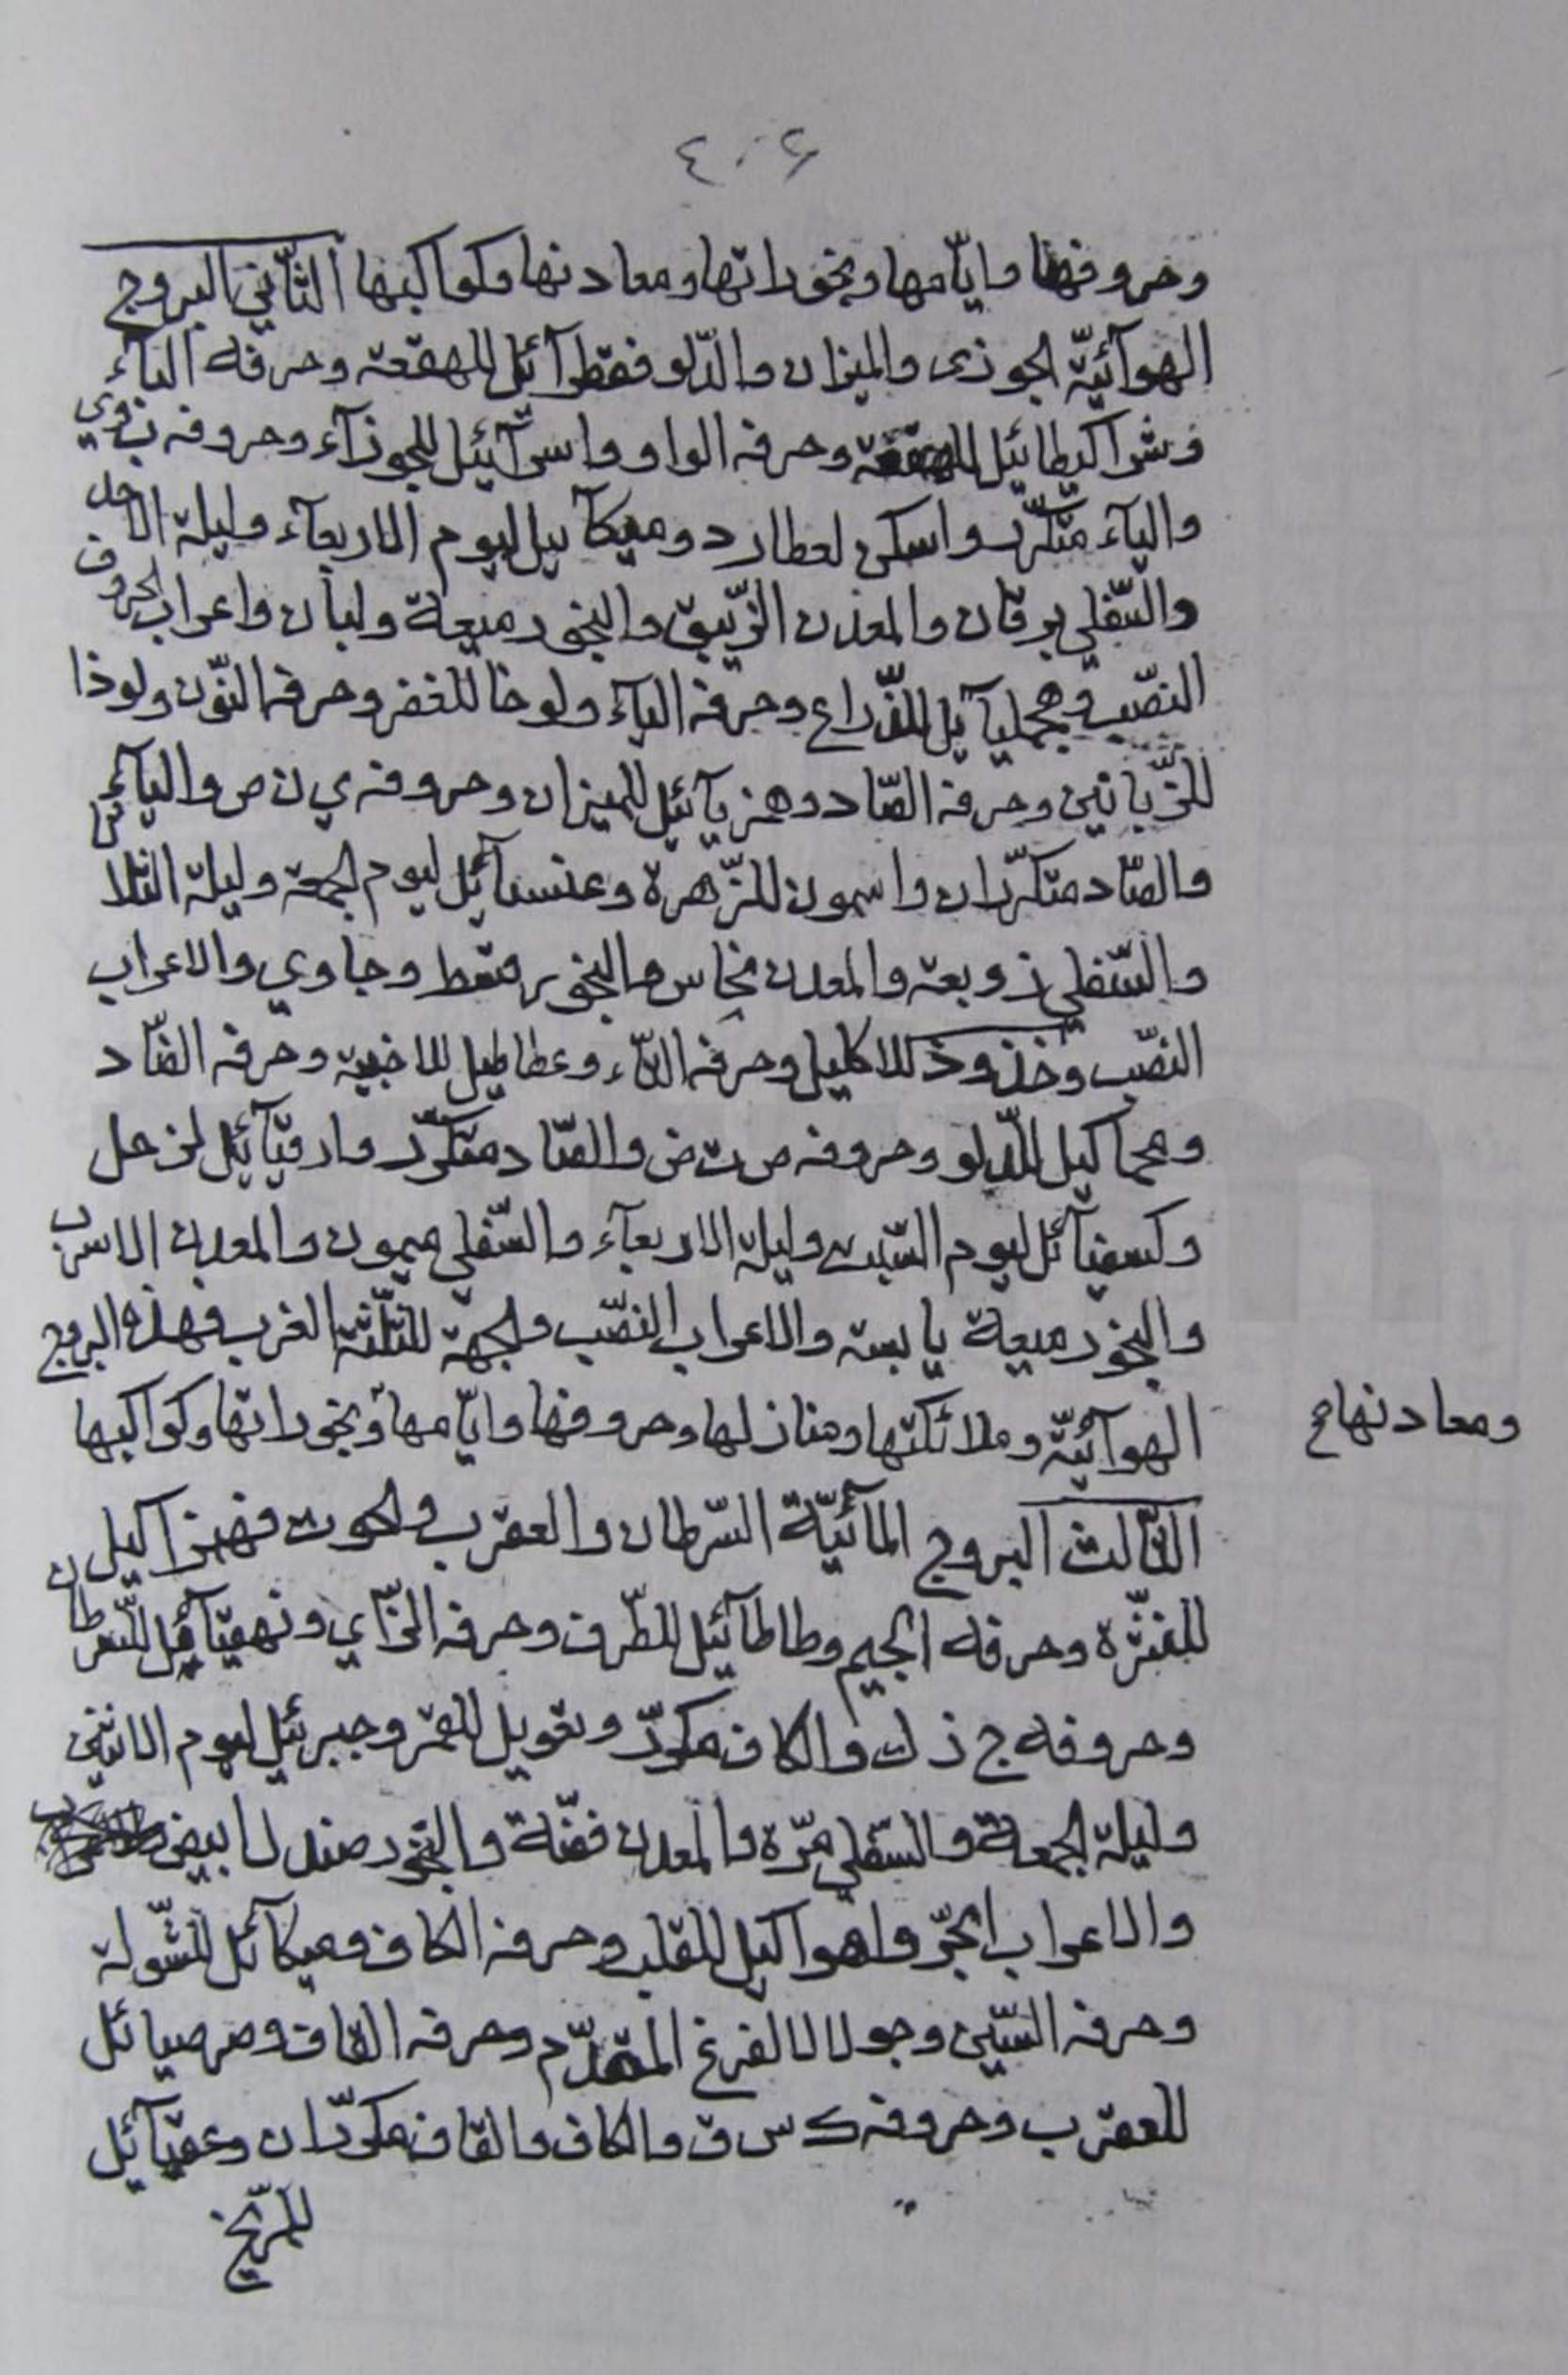 ٤٠٤
وحروفها وايّامها وبخوراتها ومعادنها وكواكبها الثّاني البروج
الهوآئيّة الجوزى والميزان والدّلو فقطرآئل للهقعة وحرفه البآء
وشراكيطائيل للهقعة وحرفه الواو واسرآئيل للجوزآء وحروفه ب و ي
واليآء متكرّر واسكى لعطارد وميكآئيل ليوم الاربعآء وليلة الاحد
والسّفلي برقان والمعدن الزّيبق والبخور ميعة ولبان واعراب الحروف
النصّب وهجمليآئيل للذّراع وحرفه اليآء ولوخا للغفر وحرفه النّون ولوذا
للزّبانين وحرفه الصّاد وهزيآئيل للميزان وحروفه ي ن ص واليآء
والصّاد متكرّران واسمون للزّهرة وعنسآئيل ليوم الجمعة وليلة الثلاثا
والسّفلي زوبعة والمعدن نحاس والبخور قعط وجاوي والاعراب
النصّب وخذوذ للاكليل وحرفه التّاء وعطاطيل للاخبية وحرفه الضّاد
ومحماكيل للّدلو وحروفه ص ت ض والصّاد متكرّر وارقيآئيل لزحل
وكسفيآئل ليوم السّبت وليلة الاربعآء والسّفلي ميمون والمعدن الاسرب
والبخور ميعة يابسة والاعراب النصّب والجهة للثلّثة الغرب فهذه البروج
الهوآئيّة وملائكتها ومنازلها وحروفها وايّامها وبخوراتها وكواكبها
ومعادنها صح
الثّالث البروج المآئيّة السّرطان والعقرب والحوت فهزاكيل
للنثّرة وحرفه الجيم وطاطآئيل للطّرف وحرفه الزّاي ونهقيآئيل للسّرطان
وحروفه ج ز ك والكاف مكرّر وبقويل للقمر وجبرئيل ليوم الاثنين
وليلة الجمعة والسّفلي مرّه والمعدن فضّة والبخور صندل ابيض
والاعراب الجرّ واهواكيل للقلب وحرفه الكاف وميكآئل للشّولة
وحرفه السّين وجولالا لفرغ المقدّم وحرفه القاف وصرصيائل
للعقرب وحروفه ك س ق والكاف والقاف مكرّران وعقيآئيل
للمرّيخ